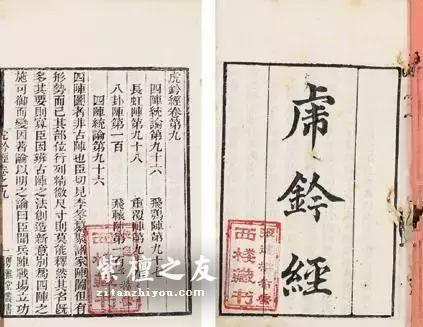 虎鈐經
虎鈐經卷第九
四陣統論第九十六 飛鶚陣第九十七
長虹陣第九十八 重覆陣第九
八卦陣第一百 飛轅陣第一
四陣統論第九十六
四陣圖者非古陣也臣切見李筌纂諸家陣圖但有
形勢而已其部位行列稍微尺寸則莫究釋然其名既
多其要則寡臣因班古陣之法創造新意別為四陣之
施可御而變因著論以明之論曰臣聞兵陣戰場立功
虎鈐經卷之九 粵雅堂叢書
藏書
紫檀之友
zitanzhiyou.com